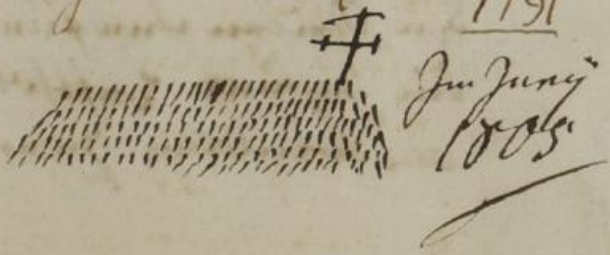 1791
Im Junÿ
1805